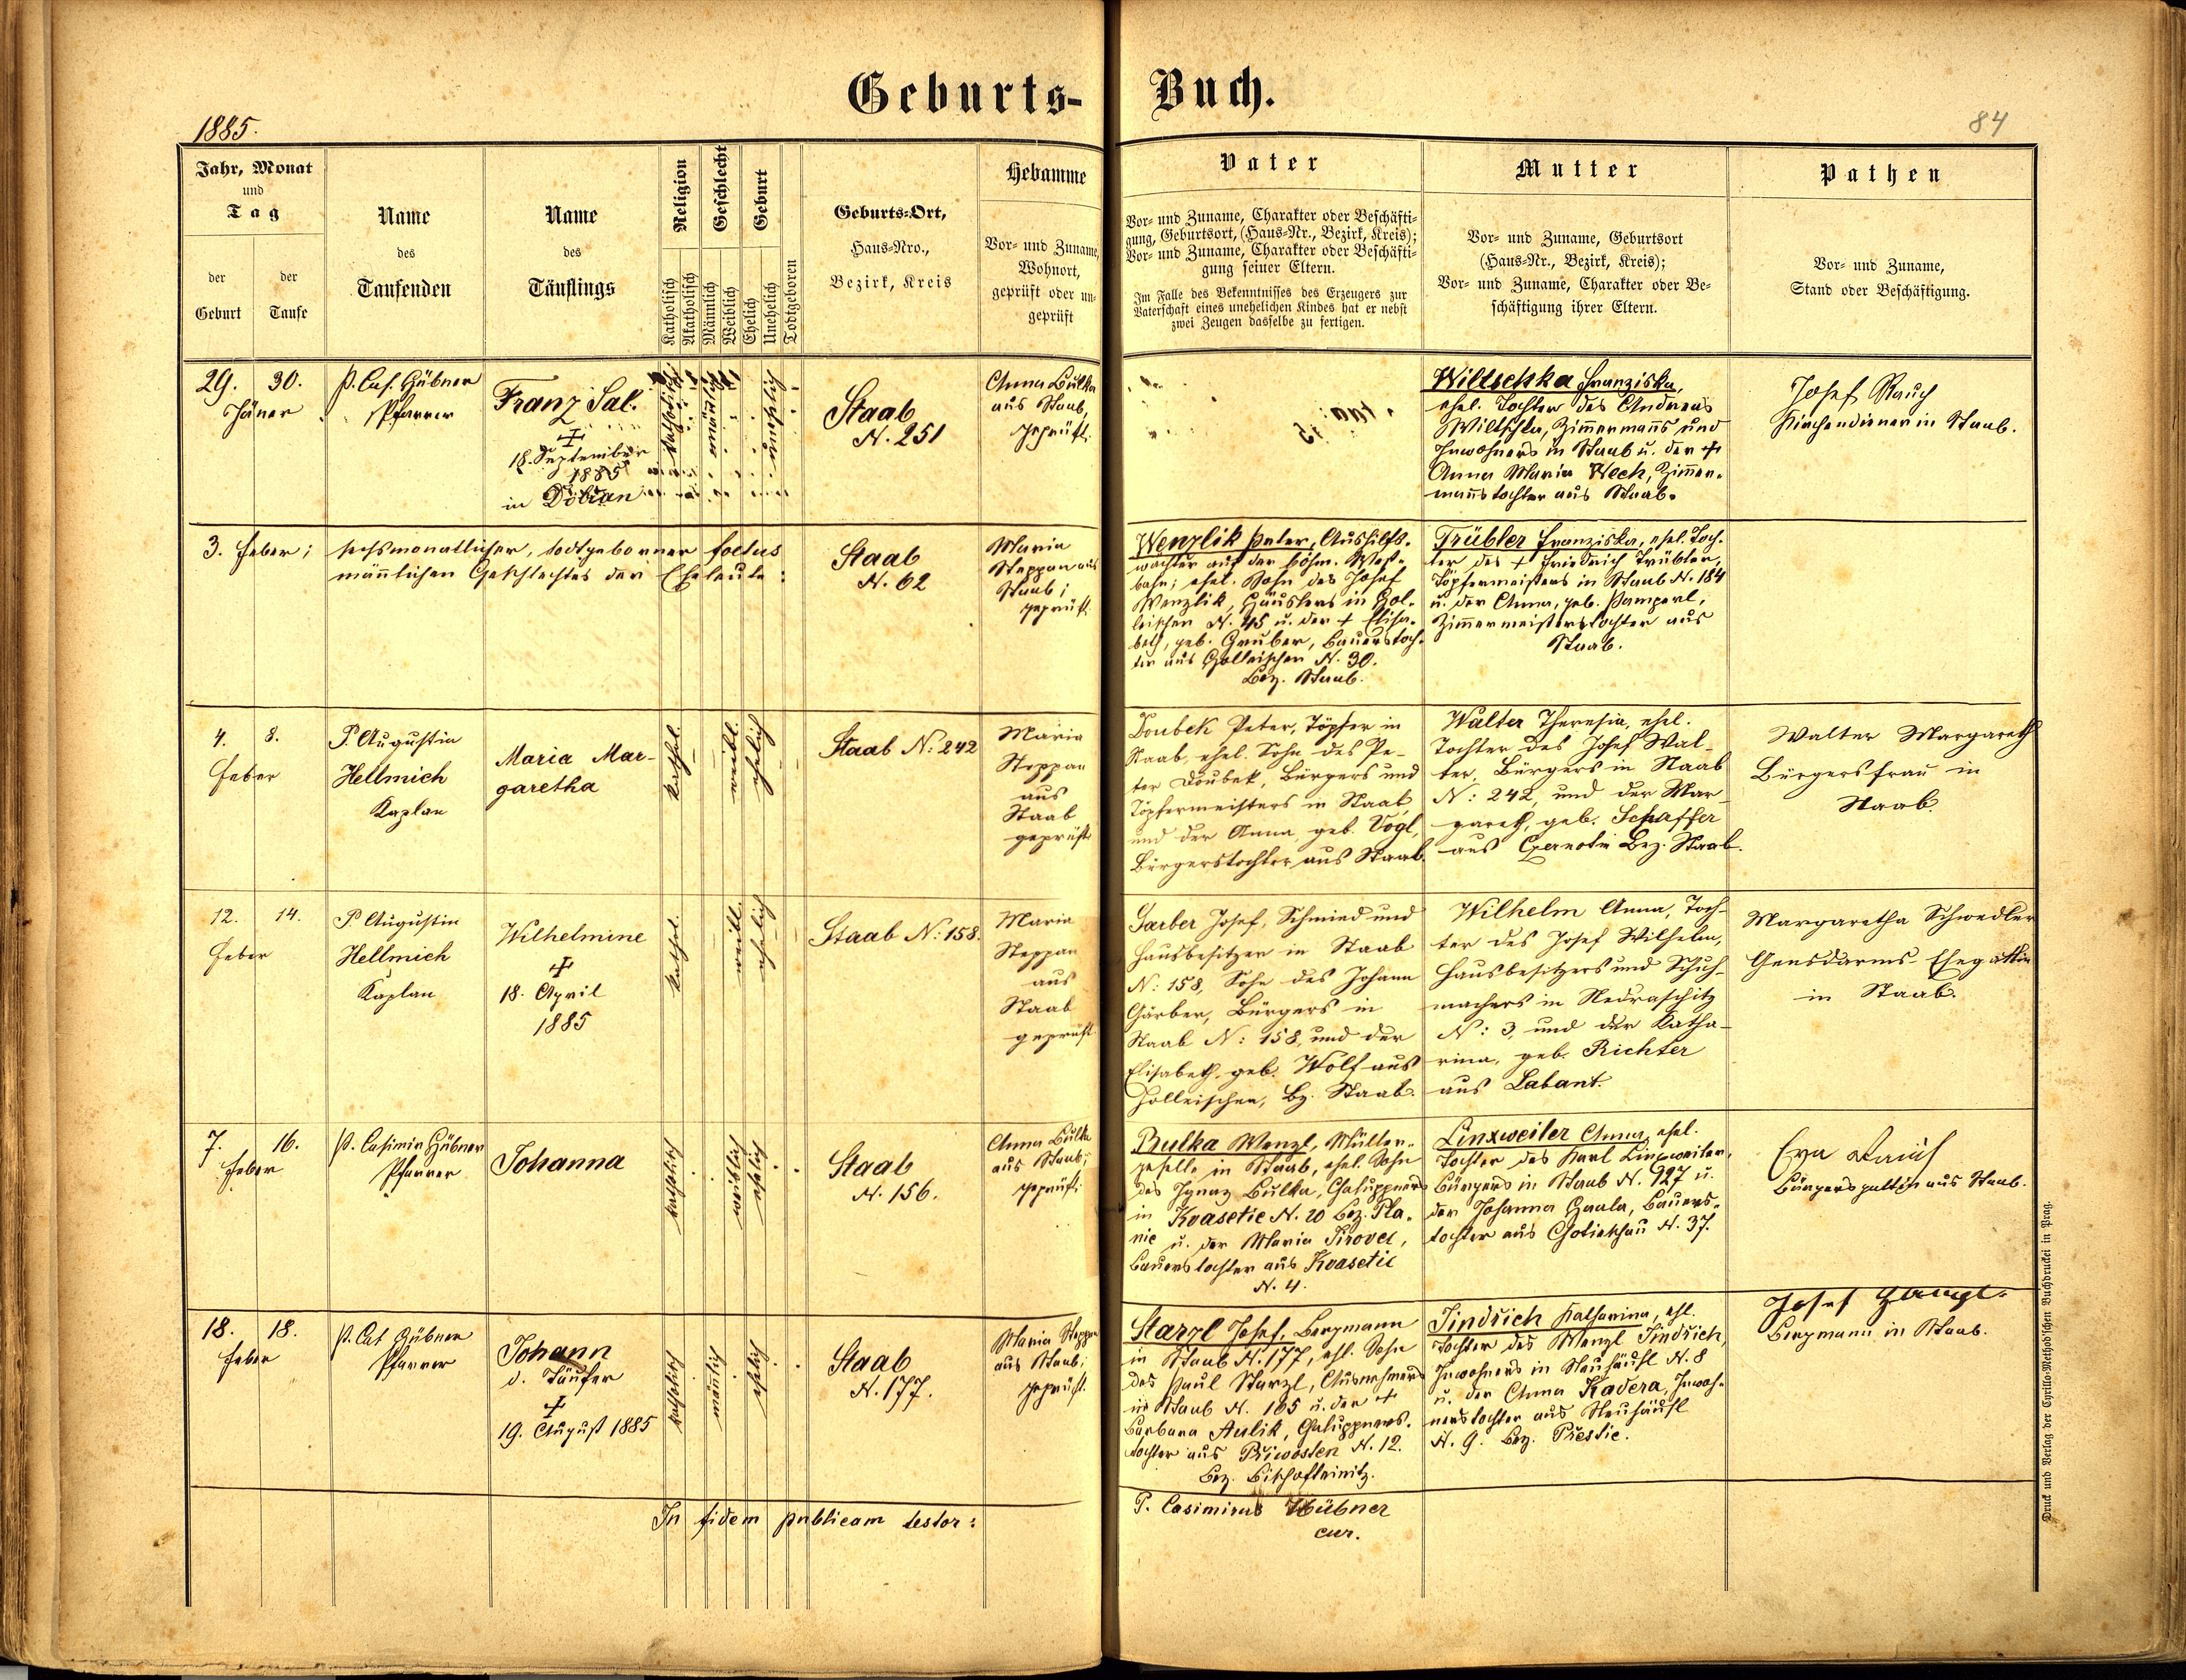 Geburts- Buch.
1885.
84
Jahr, Monat
und
Tag
der
Geburt
der
Taufe
Name
des
Taufenden
Name
des
Täuflings
Religion
Katholisch
Akatholisch
Geschlecht
Männlich
Weiblich
Geburt
Ehelich
Unehelich
Todtgeboren
Geburts-Ort,
Haus-Nro.,
Bezirk, Kreis
Hebamme
Vor- und Zuname,
Wohnort,
geprüft oder un-
geprüft
Vater
Vor- und Zuname, Charakter oder Beschäfti-
gung, Geburtsort, (Haus-Nr., Bezirk, Kreis);
Vor- und Zuname, Charakter oder Beschäfti-
gung seiner Eltern.
Im Falle des Bekenntnisses des Erzeugers zur
Vaterschaft eines unehelichen Kindes hat er nebst
zwei Zeugen dasselbe zu fertigen.
Mutter
Vor- und Zuname, Geburtsort
(Haus-Nr., Bezirk, Kreis);
Vor- und Zuname, Charakter oder Be-
schäftigung ihrer Eltern.
Pathen
Vor- und Zuname,
Stand oder Beschäftigung.
29. 30.
Jäner
P. Cas. Hübner
Pfarrer
Franz Sal.
+
18. September
1885
in Dobřan
katholisch
männlich
unehelich
Staab
N. 251
Anna Bulka
aus Staab,
geprüft.
Wiltschka Franziska,
ehel. Tochter des Andreas
Wiltschka, Zimmermanns und
Inwohners in Staab u. der +
Anna Maria Wech, Zimmer-
mannstochter aus Staab.
Josef Rauch
Kirchendiener in Staab.
3. Feber;
sechsmonatlicher, todtgeborner foetus
männlichen Geschlechtes der Eheleute:
Staab
N. 62
Maria
Steppan aus
Staab;
geprüft.
Wenzlik Peter, Aushilfs-
wächter auf der böhm. West-
bahn; ehel. Sohn des Josef
Wenzlik, Häuslers in Hol-
leischen N. 45 u. der + Elisa-
beth, geb. Gruber, Bauerstoch-
ter aus Holleischen N. 30.
Bez. Staab.
Trübler Franziska, ehel. Toch-
ter des + Friedrich Trübler,
Töpfermeisters in Staab N. 184
u. der Anna, geb. Pamperl,
Zimmermeisterstochter aus
Staab.
4. 8.
Feber
P. Augustin
Hellmich
Kaplan
Maria Mar-
garetha
kathol.
weibl.
ehelich
Staab N: 242
Maria
Steppan
aus
Staab
geprüft
Doubek Peter, Töpfer in
Staab, ehel. Sohn des Pe-
ter Doubek, Bürgers und
Töpfermeisters in Staab,
und der Anna, geb. Vogl,
Bürgerstochter aus Staab.
Walter Theresia, ehel.
Tochter des Josef Wal-
ter, Bürgers in Staab
N: 242, und der Mar-
gareth, geb. Schaffer
aus Czernotin Bez. Staab.
Walter Margareth
Bürgersfrau in
Staab.
12. 14.
Feber
P. Augustin
Hellmich
Kaplan
Wilhelmine
+
18. April
1885
kathol.
weibl.
ehelich
Staab N: 158.
Maria
Steppan
aus
Staab
geprüft
Garber Josef, Schmied und
Hausbesitzer in Staab
N: 158, Sohn des Johann
Gärber, Bürgers in
Staab N: 158, und der
Elisabeth geb. Wolf aus
Holleischen, Bz. Staab.
Wilhelm Anna, Toch-
ter des Josef Wilhelm,
Hausbesitzers und Schuh-
machers in Nedraschitz
N: 3, und der Katha-
rina, geb. Richter
aus Labant.
Margaretha Schwedler
Gensdarms-Ehegattin
in Staab.
7. 16.
Feber
P. Casimir Hübner
Pfarrer
Johanna
katholisch
weiblich
ehelich
Staab
N. 156.
Anna Bulka
aus Staab;
geprüft.
Bulka Wenzl, Müller-
geselle in Staab, ehel. Sohn
des Ignaz Bulka, Chaluppners
in Kvasetic N. 20 Bez. Pla-
nic u. der Maria Sirovec,
Bauerstochter aus Kvasetic
N. 4.
Linxweiler Anna, ehel.
Tochter des Karl Linxweiler,
Bürgers in Staab N. 127 u.
der Johanna Haala, Bauers-
tochter aus Chotieschau N. 37.
Eva
Bürgersgattin aus Staab.
18. 18.
Feber
P. Cas Hübner
Pfarrer
Johann
d. Täufer
+
19. August 1885
katholisch
männlich
ehelich
Staab
N. 177.
Maria Steppan
aus Staab;
geprüft.
Starzl Josef, Bergmann
in Staab N. 177, ehl. Sohn
des Paul Starzl, Ausnehmers
in Staab N. 165 u. der +
Barbara Aulik, Chaluppners-
tochter aus Přiwosten N. 12.
Bez. Bischofteinitz.
Jindřich Katharina, ehl.
Tochter des Wenzl Jindřich,
Inwohners in Neuhäusl N. 8
u. der Anna Kadera, Inwoh-
nerstochter aus Neuhäusl
N. 9. Bez. Přestic.
Josef
Bergmann in Staab.
In fidem publicam testor:
P. Casimirus Hübner
cur.
Druck und Verlag der Cyrillo-Method'schen Buchdruckei in Prag.